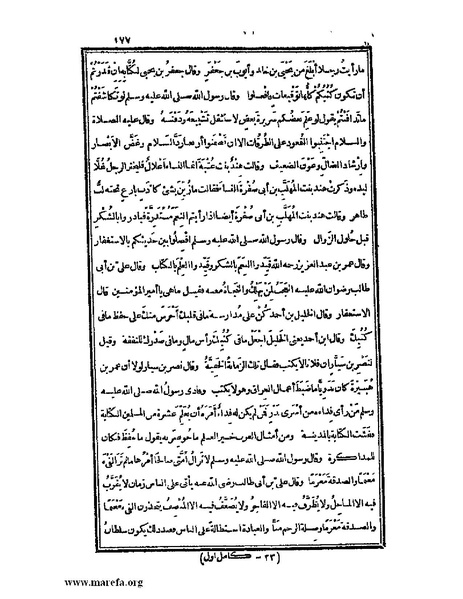 ١٧٧
ما رأيت رجلا أبلغ من يحيى بن خالد وأيوب بن جعفر وقال جعفر بن يحيى لكتّابه ان قدرتم
أن تكون كتبكم كأنها توقيعات فافعلوا وقال رسول الله صلى الله عليه وسلم لو تكاشفتم
ما تدافنتم يقول لو علم بعضكم سريرة بعض لاستثقل تشييعه ودفنه وقال عليه الصلاة
والسلام اجتنبوا القعود على الطرقات الا ان تضمنوا أربعا رد السلام وغض الابصار
وارشاد الضال وعون الضعيف وقالت هند بنت عتبة انما النساء أغلال فليختر الرجل غلا
ليده وذكرت هند بنت المهلب بن أبى صفرة النساء فقالت ما زين بشئ كأدب بارع تحته لب
طاهر وقالت هند بنت المهلب بن أبى صفرة أيضا اذا رأيتم النعم مستدرة فبادروا بالشكر
قبل حلول الزوال وقال رسول الله صلى الله عليه وسلم افصلوا بين حديثكم بالاستغفار
وقال عمر بن عبد العزيز رحمه الله قيدوا النعم بالشكر وقيدوا العلم بالكتاب وقال على بن أبى
طالب رضوان الله عليه العجب لمن يهلك والنجاة معه فقيل ما هى يا أمير المؤمنين قال
الاستغفار وقال الخليل بن أحمد كن على مدارسة ما فى قلبك أحرص منك على حفظ ما فى
كتبك وقال ابن أحمد يعنى الخليل اجعل ما فى كتبك رأس مال وما فى صدرك للنفقة وقيل
لنصر بن سيار ان فلانا لا يكتب فقال تلك الزمانة الخفية وقال نصر بن سيار لولا أن عمر بن
هبيرة كان بدويا ما ضبط أعمال العراق وهو لا يكتب وفادى رسول الله صلى الله عليه
وسلم من رأى فداءه من أسرى بدر فمن لم يكن له فداء أمره أن يعلم عشرة من المسلمين الكتابة
ففشت الكتابة بالمدينة ومن أمثال العرب خير العلم ما حوضر به يقول ما حفظ فكان
للمذاكرة وقال رسول الله صلى الله عليه وسلم لا تزال أمتى صالحا أمرها ما لم تر الفئ
مغنما والصدقة مغرما وقال على بن أبى طالب رضى الله عنه يأتى على الناس زمان لا يقرب
فيه الا الماحل ولا يظرف فيه الا الفاجر ولا يضعف فيه الا المنصف يتخذون الفئ مغنما
والصدقة مغرما وصلة الرحم منا والعبادة استطالة على الناس فعند ذلك يكون سلطان
(٢٣ - كامل اول)
www.marefa.org